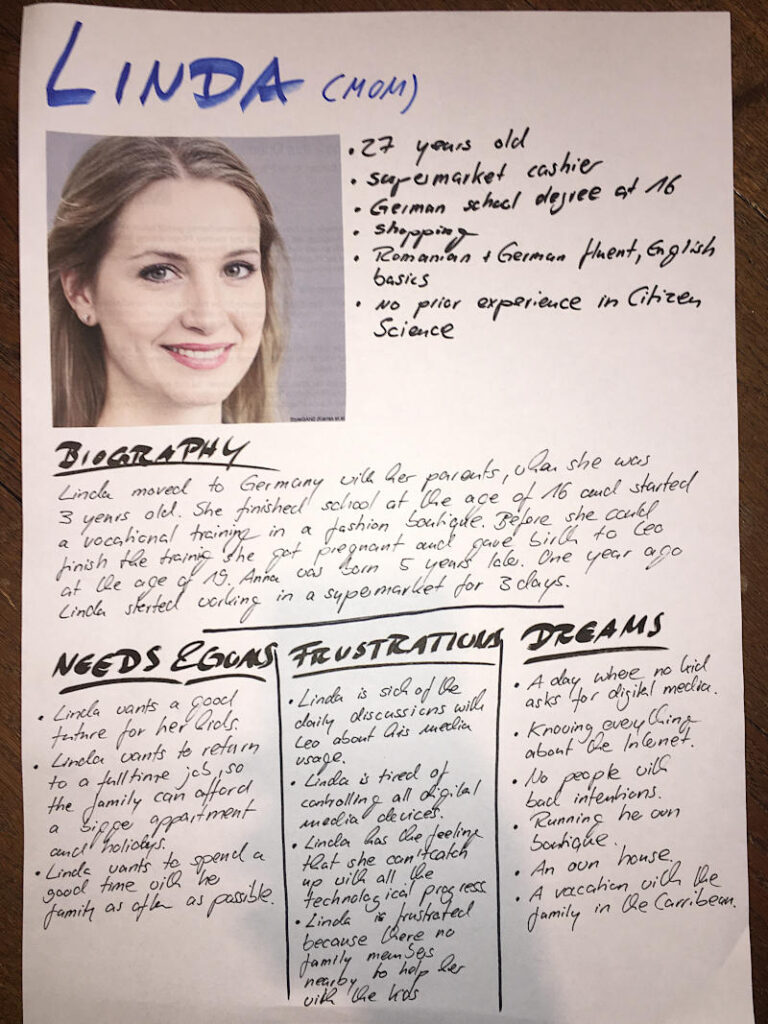 LINDA (MOM)
• 27 years old
• supermarket cashier
• German school degree at 16
• shopping
• Romanian + German fluent, English
basics
• No prior experience in Citizen
Science
BIOGRAPHY
Linda moved to Germany with her parents, when she was
3 years old. She finished school at the age of 16 and started
a vocational training in a fashion boutique. Before she could
finish the traing she got pregnant and gave birth to Leo
at the age of 19. Anna was born 5 years late. One year ago
Linda started working in a supermarket for 3 days.
NEEDS & GOALS
• Linda wants a good
future for her kids.
• Linda wants to return
to a fulltime job, so
the family can afford
a bigge appartment
and holidays.
• Linda wants to spend a
good time with he
family as often as possible.
FRUSTRATIONS
• Linda is sick of the
daily discussions with
Leo about his media
usage.
• Linda is tired of
controlling all digital
media devices.
• Linda has the feeling
that she can't catch
up with all the
technological progress
• Linda is frustrated
because there no
family members
nearby to help her
with the kids
DREAMS
• A day where no kid
asks for digital media.
• Knowing everything
about the Internet.
• No people with
bad intentions.
• Running he own
boutique.
• An own house.
• A vacation with the
family in the Carribean.